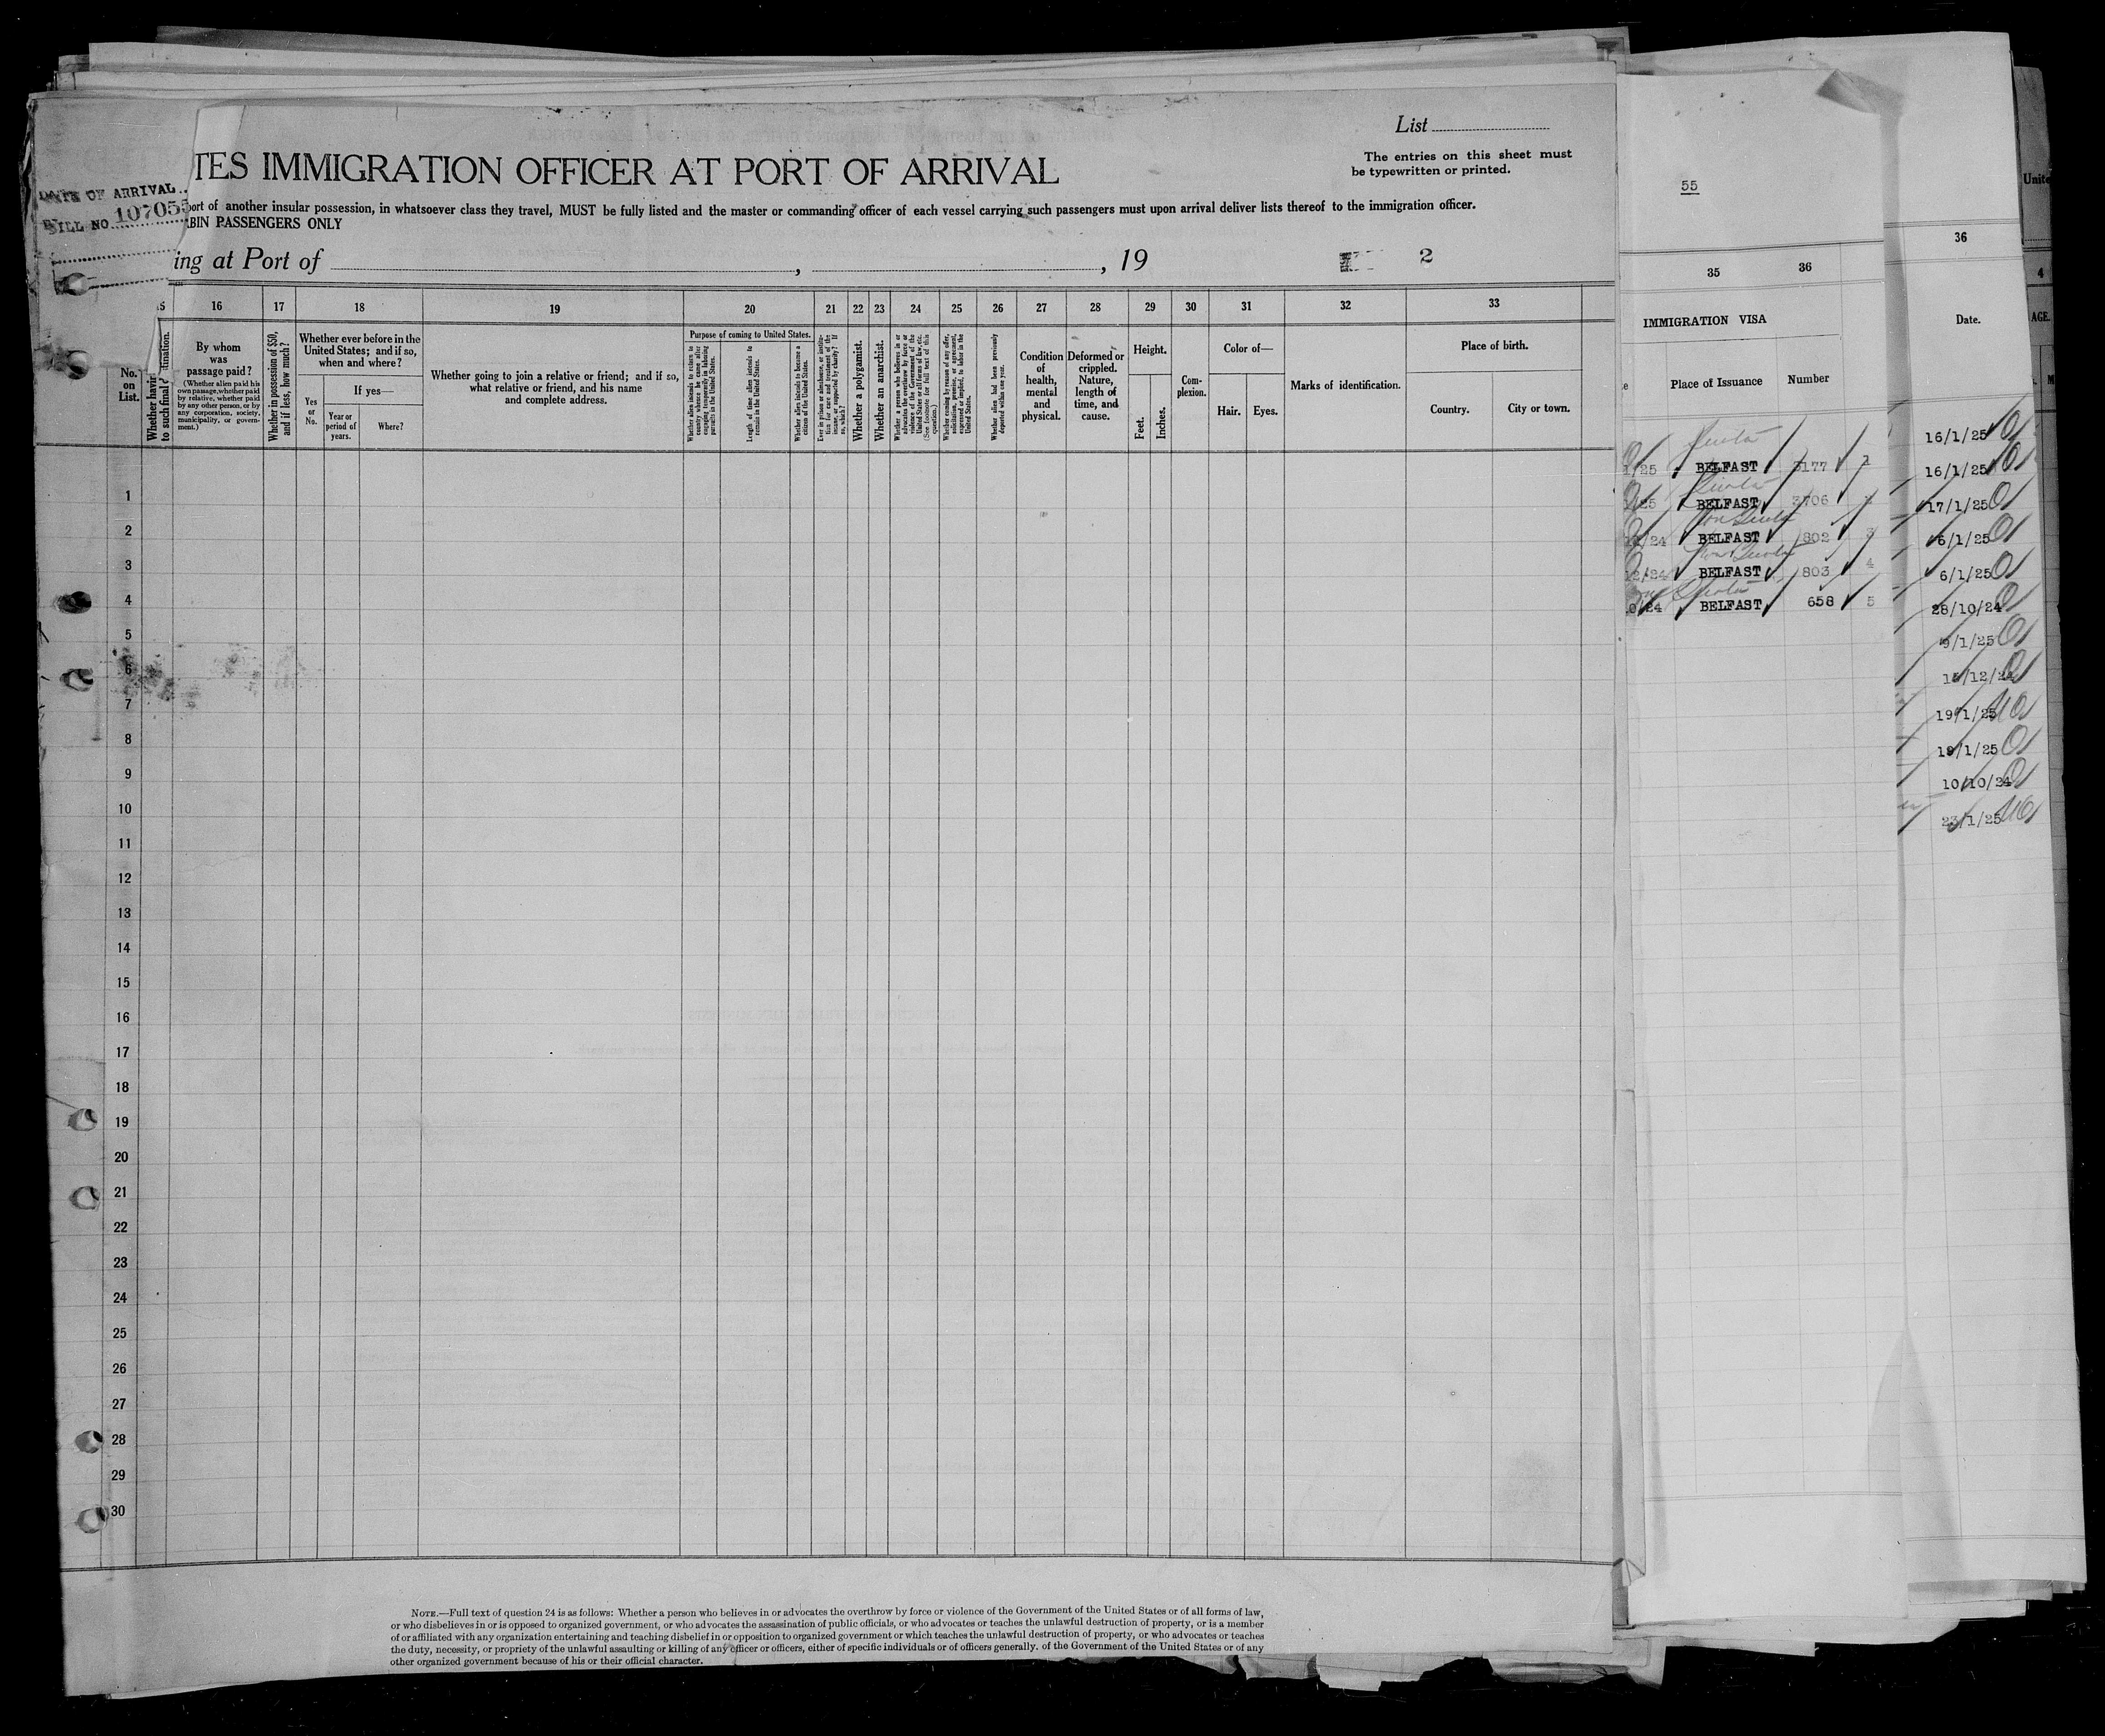 List
TES IMMIGRATION OFFICER AT PORT OF ARRIVAL
The entries on this sheet must
be typewritten or printed.
DATE OF ARRIVAL
BILL NO. 107055
port of another insular possession, in whatsoever class they travel, MUST be fully listed and the master or commanding officer of each vessel carrying such passengers must upon arrival deliver lists thereof to the immigration officer.
BIN PASSENGERS ONLY
ing at Port of , , 19
2
15 16 17 18 19 20 21 22 23 24 25 26 27 28 29 30 31 32 33
No.
on
List.
By whom
was
passage paid?
(Whether alien paid his
own passage, whether paid
by relative, whether paid
by any other person, or by
any corporation, society,
municipality, or govern-
ment.)
Whether in possession of $50,
and if less, how much?
Whether ever before in the
United States; and if so,
when and where?
Yes
or
No.
If yes—
Year or
period of
years.
Where?
Whether going to join a relative or friend; and if so,
what relative or friend, and his name
and complete address.
Purpose of coming to United States.
Whether alien intends to return to
country whence he came after
engaging temporarily in laboring
pursuits in the United States.
Length of time alien intends to
remain in the United States.
Whether alien intends to become a
citizen of the United States.
Ever in prison or almshouse, or institu-
tion for care and treatment of the
insane, or supported by charity? If
so, which?
Whether a polygamist.
Whether an anarchist.
Whether a person who believes in or
advocates the overthrow by force or
violence of the Government of the
United States or all forms of law, etc.
(See footnote for full text of this
question.)
Whether coming by reason of any offer,
solicitation, promise, or agreement,
expressed or implied, to labor in the
United States.
Whether alien had been previously
deported within one year.
Condition
of
health,
mental
and
physical.
Deformed or
crippled.
Nature,
length of
time, and
cause.
Height.
Feet.
Inches.
Com-
plexion.
Color of—
Hair.
Eyes.
Marks of identification.
Place of birth.
Country.
City or town.
1
2
3
4
5
6
7
8
9
10
11
12
13
14
15
16
17
18
19
20
21
22
23
24
25
26
27
28
29
30
NOTE.—Full text of question 24 is as follows: Whether a person who believes in or advocates the overthrow by force or violence of the Government of the United States or of all forms of law,
or who disbelieves in or is opposed to organized government, or who advocates the assassination of public officials, or who advocates or teaches the unlawful destruction of property, or is a member
of or affiliated with any organization entertaining and teaching disbelief in or opposition to organized government or which teaches the unlawful destruction of property, or who advocates or teaches
the duty, necessity, or propriety of the unlawful assaulting or killing of any officer or officers, either of specific individuals or of officers generally. of the Government of the United States or of any
other organized government because of his or their official character.
55
35 36
IMMIGRATION VISA
Place of Issuance Number
Quota
/25 BELFAST 3177 1
Quota
/25 BELFAST 3706
Non Quota
/24 BELFAST 802 3
Non Quota
12/24 BELFAST 803 4
Non Quota
0/24 BELFAST 658 5
36
Date.
16/1/25
16/1/25
17/1/25
6/1/25
6/1/25
28/10/24
9/1/25
15/12/24
19/1/25
19/1/25
10/10/24
23/1/25
Unite
4
AGE.